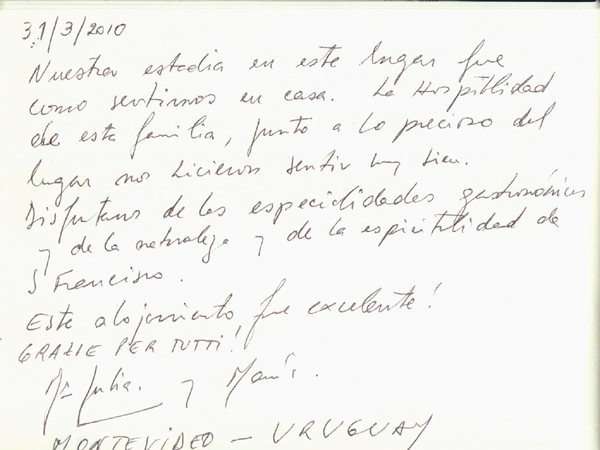 31/3/2010
Nuestra estadia en este lugar fue
como sentirnos en casa. La Hospitlidad
de esta familia, junto a lo precioso del
lugar nos hicieron sentir muy bien.
Disfrutamos de las especialidades gastronómicas
y de la naturaleza y de la espiritualidad de
S Francisco.
Este alojamiento, fue excelente!
GRAZIE PER TUTTI!
Ma Julia. y
MONTEVIDEO – URUGUAY